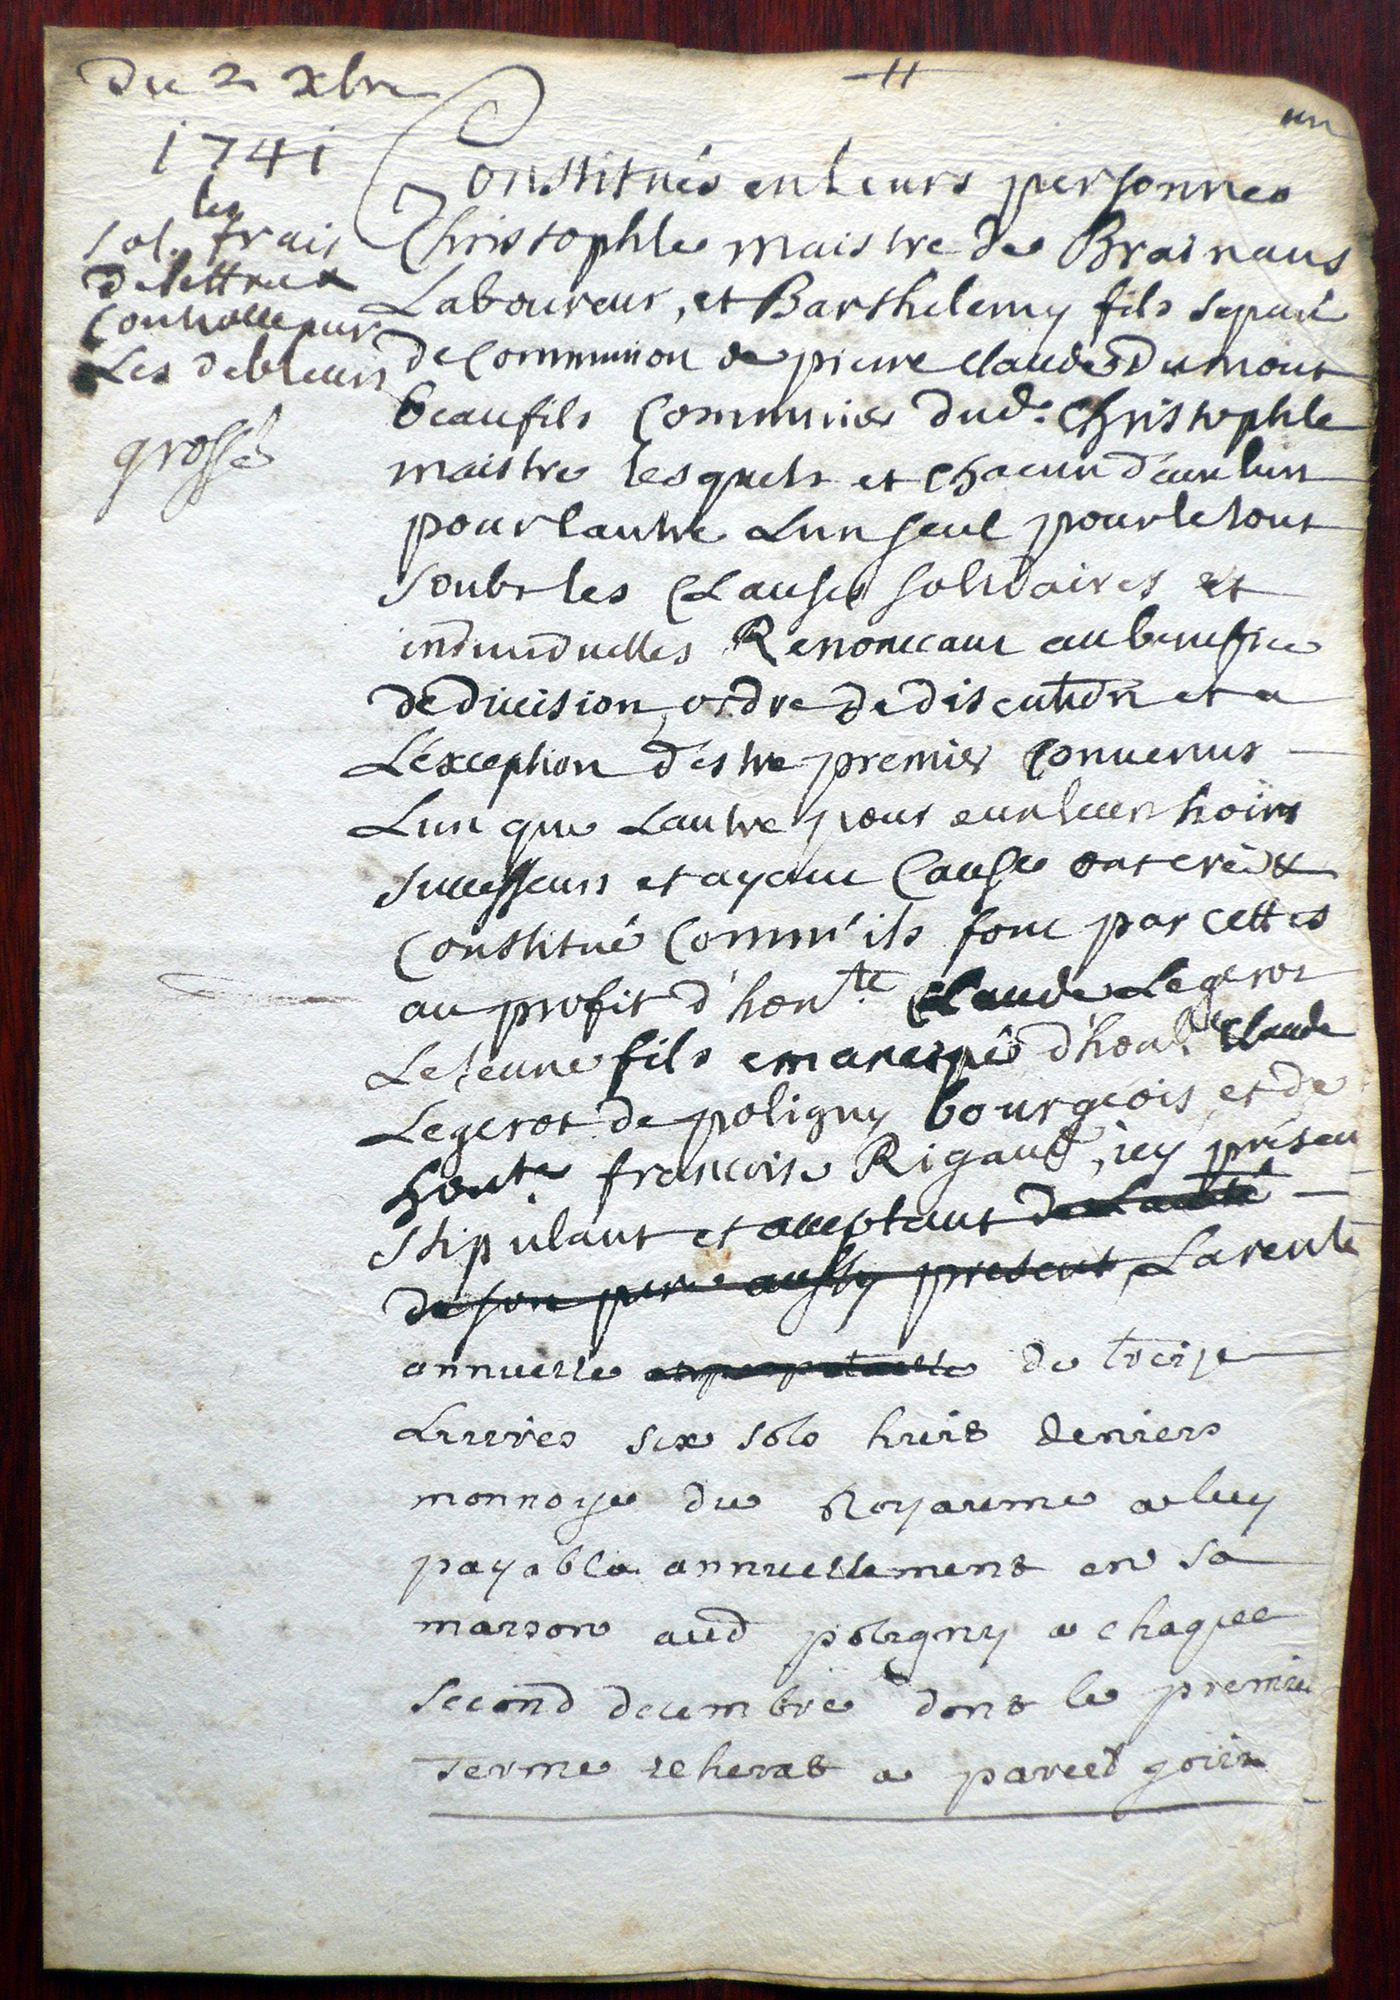 Du 2 xbre
1741
les
sol. frais
de lettre et
Controlle sur
Les debteurs
grossé
un
Constitués en leurs personnes
Christophle maistre de Brainans
Laboureur, et Barthelemy fils separé
de Communion de pierre claude Dumont
beaufils Communier dud. Christophle
maistre lesquels et chacun d'eux lun
pour lautre Lun seul pour le tout
soubs les Clauses solidaires et
individuelles Renonceant au benefice
de division, ordre de discution et a
L'éxception d'éstre premier Convenus
Lun que Lautre pour eux leurs hoirs
successeurs et ayant Cause ont créé et
Constitué Comm'ils font par cettes
au profit d'hon.te Claude Legerot
Le Jeune fils emancipé d'hon.le Claude
Legerot de poligny bourgeois, et de
hon.te francoise Rigaud, icy présent
stipulant et acceptant de Lautté
de son pere aussy present, La rente
annuelle et perpetuelle de treize
Livres six sols huit deniers
monnoye du Royaume a luy
payable annuellement en sa
maison aud poligny a chaque
second decembre dont le premier
terme écherat a pareil jour